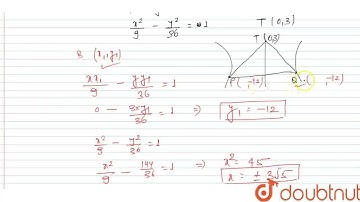 x²/9 - y²/36 = 1
T (0,3)
T (0,3)
B (x₁,y₁)
xx₁/9 - yy₁/36 = 1
P( , -12)
Q ( , -12)
0 - 3xy₁/36 = 1 ⇒ y₁ = -12
x²/9 - y²/36 = 1
x²/9 - 144/36 = 1 ⇒ x² = 45
x = ± 3√5
doubtnut